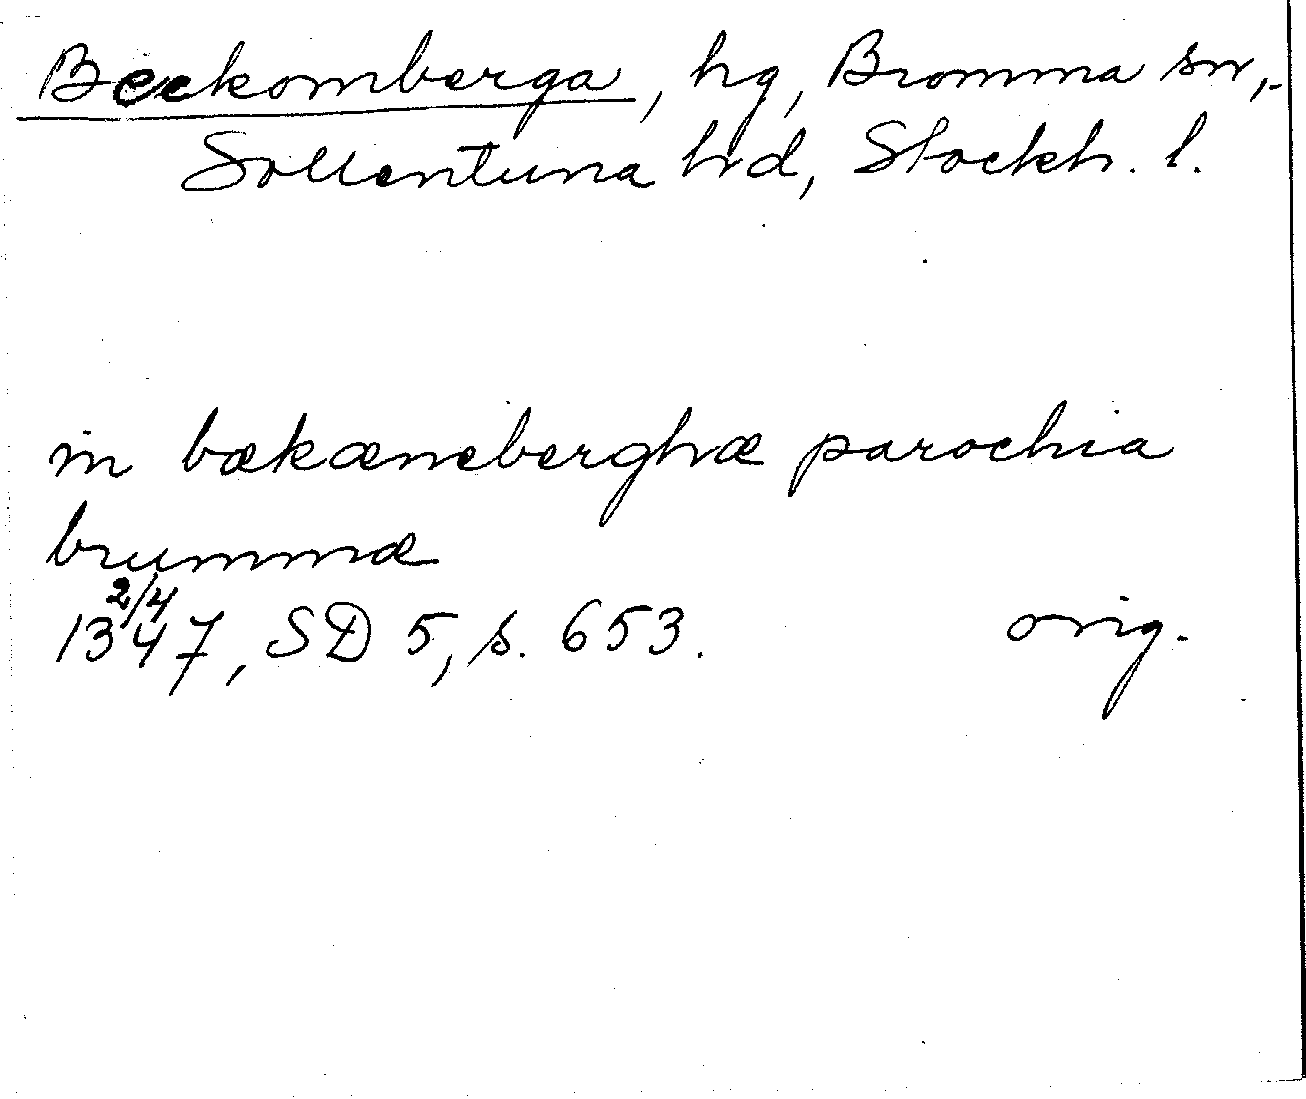 Beckomberga, hg, Bromma sn,
Sollentuna hd, Stockh. l.
in bækæneberghæ parochia
brummæ
2/4
1347, SD 5, s. 653. orig.